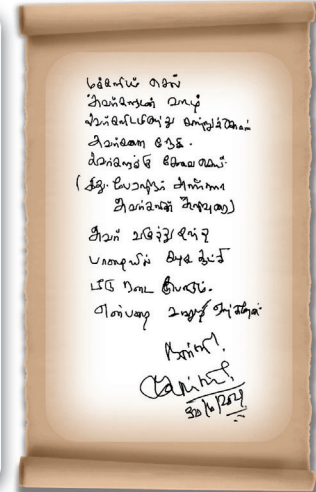 மக்களிடம் செல்
அவர்களுடன் வாழ்
அவர்களிடமிருந்து கற்றுக்கொள்
அவர்களை நேசி.
அவர்களுக்கு சேவை செய்.
(இது பேரறிஞர் அண்ணா
அவர்களின் அறிவுரை)
அவர் வகுத்து தந்த
பாதையில் கழக ஆட்சி
பீடு நடை போடும்.
என்பதை உறுதி
நன்றி!